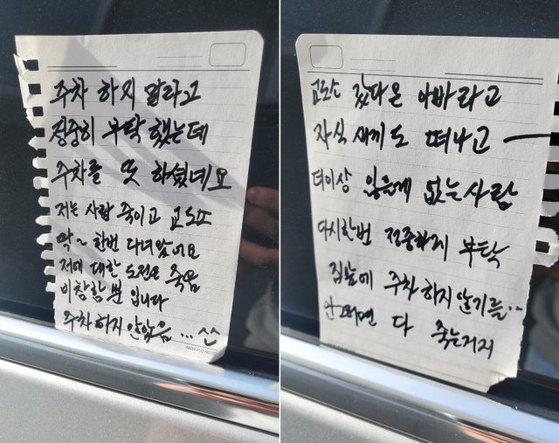 주차 하지 말라고
정중히 부탁 했는데
주차를 또 하셨네요
저는 사람 죽이고 교도소
딱~ 한번 다녀왔어요
저에 대한 도전은 죽음
비참함 뿐 입니다
주차하지 않았음...
교도소 갔다온 아빠라고
자식 새끼도 떠나고
더이상 잃을게 없는 사람
다시한번 정중하게 부탁
집앞에 주차하지 않기를..
안그러면 다 죽는거지